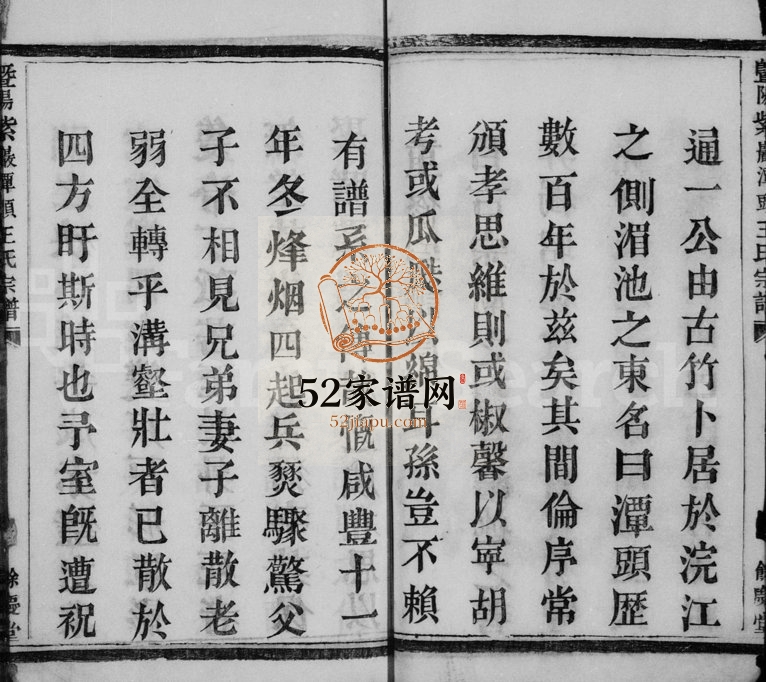 暨陽紫巖潭頭王氏宗譜
餘慶堂
通一公由古竹卜居於浣江
之側湄池之東名曰潭頭歷
數百年於玆矣其間倫序常
頒孝思維則或椒馨以寧胡
考或瓜瓞綿耳孫豈不賴
有譜系之傳慨咸豐十一
年冬烽烟四起兵燹驟驚父
子不相見兄弟妻子離散老
弱全轉乎溝壑壯者已散於
四方盱斯時也予室旣遭祝
暨陽紫巖潭頭王氏宗譜
餘慶堂
52家谱网
52jiapu.com
FamilySearch